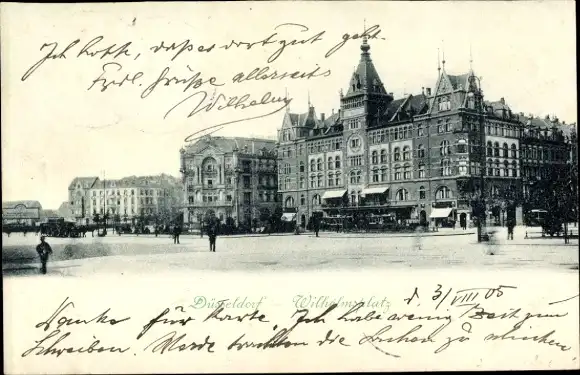 Ich hoffe, daß es dort gut geht.
Frdl. Grüße allerseits
Wilhelm
Düsseldorf Wilhelmsplatz
d. 3/VIII 05
Danke für Karte. Ich habe wenig Zeit zum
Schreiben. Werde trachten die Sachen zu schicken.